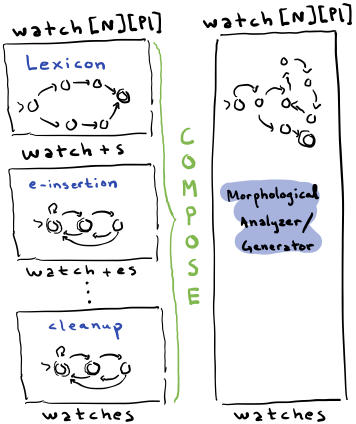 watch[N][Pl]
Lexicon
watch+s
e-insertion
watch+es
cleanup
watches
COMPOSE
watch[N][Pl]
Morphological
Analyzer/
Generator
watches